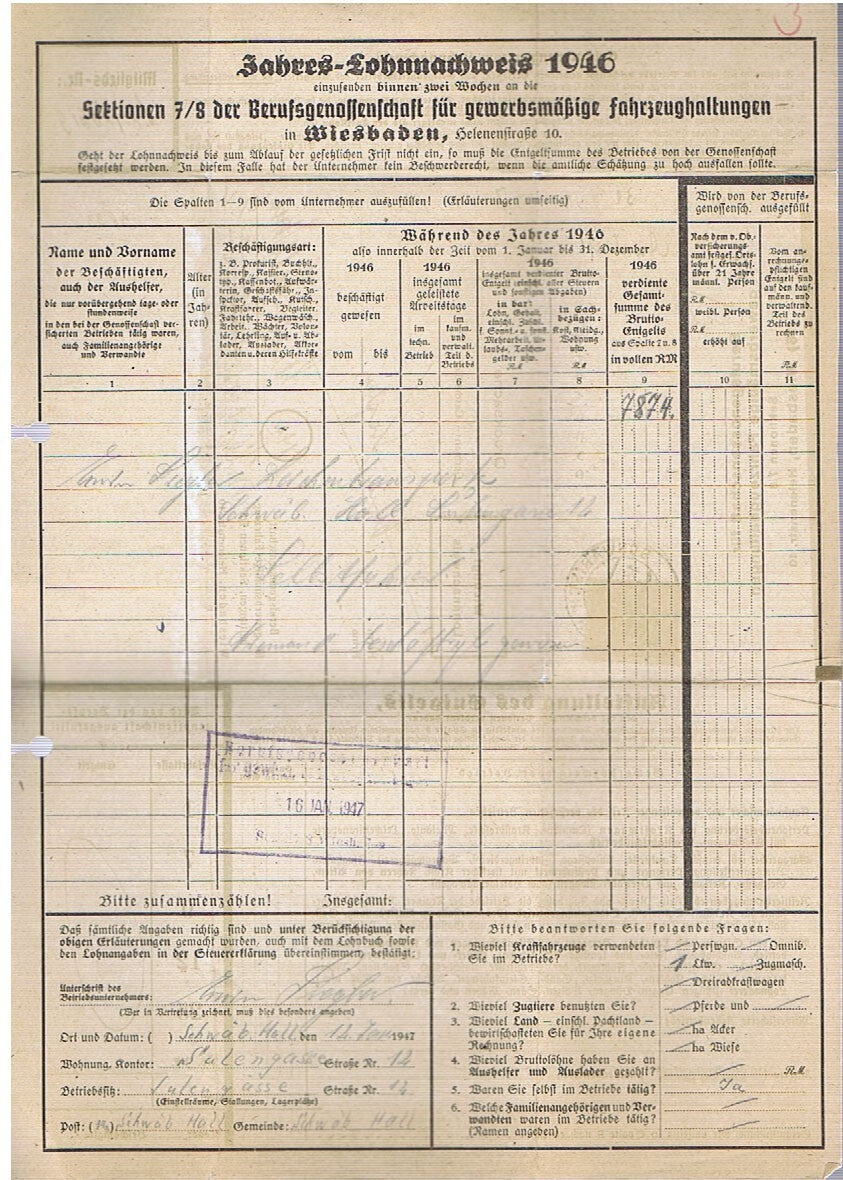 3
Jahres-Lohnnachweis 1946
einzusenden binnen zwei Wochen an die
Sektionen 7/8 der Berufsgenossenschaft für gewerbsmäßige Fahrzeughaltungen
in Wiesbaden, Helenenstraße 10.
Geht der Lohnnachweis bis zum Ablauf der gesetzlichen Frist nicht ein, so muß die Entgeltsumme des Betriebes von der Genossenschaft
festgesetzt werden. In diesem Falle hat der Unternehmer kein Beschwerderecht, wenn die amtliche Schätzung zu hoch ausfallen sollte.
Die Spalten 1—9 sind vom Unternehmer auszufüllen! (Erläuterungen umseitig)
Wird von der Berufs-
genossensch. ausgefüllt
Name und Vorname
der Beschäftigten,
auch der Aushelfer,
die nur vorübergehend tage- oder
stundenweise
in den bei der Genossenschaft ver-
sicherten Betrieben tätig waren,
auch Familienangehörige
und Verwandte
Alter
(in
Jah-
ren)
Beschäftigungsart:
z. B. Prokurist, Buchh.,
Korresp., Kassier, Steno-
typ., Kassenbot., Aufwär-
terin, Geschäftsführ., In-
spektor, Aufseh., Kutsch.,
Kraftfahrer, Begleiter,
Fahrlehr., Wagenwäsch.,
Arbeit., Wächter, Volon-
tär, Lehrling, Auf- u. Ab-
lader, Auslader, Akkor-
danten u. deren Hilfskräfte
Während des Jahres 1946
also innerhalb der Zeit vom 1. Januar bis 31. Dezember
1946
beschäftigt
gewesen
vom bis
1946
insgesamt
geleistete
Arbeitstage
im
techn.
Betrieb
im
kaufm.
und
verwalt.
Teil d.
Betriebs
1946
insgesamt verdienter Brutto-
Entgelt (einschl. aller Steuern
und sonstigen Abgaben)
in bar:
Lohn, Gehalt,
einschl. Zuschl.
f. Sonnt.- u. sonst.
Mehrarbeit, Ur-
laubs-, Taschen-
gelder usw.
RM
in Sach-
bezügen:
Kost, Kleidg.,
Wohnung
usw.
RM
1946
verdiente
Gesamt-
summe des
Brutto-
Entgelts
aus Spalte 7 u. 8
in vollen RM
Nach dem v. Ob.-
versicherungs-
amt festges. Orts-
lohn f. Erwachs.
über 21 Jahre
männl. Person
RM
weibl. Person
RM
erhöht auf
Vom an-
rechnungs-
pflichtigen
Entgelt sind
auf den kauf-
männ. und
verwaltend.
Teil des
Betriebs zu
rechnen
RM
1 2 3 4 5 6 7 8 9 10 11
7874.
Leichentransport
Schwäb. Hall 12
Selbstfahrer
Niemand beschäftigt gewesen
16 JAN. 1947
Bitte zusammenzählen! Insgesamt:
Daß sämtliche Angaben richtig sind und unter Berücksichtigung der
obigen Erläuterungen gemacht wurden, auch mit dem Lohnbuch sowie
den Lohnangaben in der Steuererklärung übereinstimmen, bestätigt:
Unterschrift des
Betriebsunternehmers:
(Wer in Vertretung zeichnet, muß dies besonders angeben)
Ort und Datum: ( ) Schwäb. Hall den 12. Jan. 1947
Wohnung, Kontor: Sulengasse Straße Nr. 12
Betriebssitz: Sulengasse Straße Nr. 12
(Einstellräume, Stallungen, Lagerplätze)
Post: Schwäb Hall Gemeinde: Schwäb Hall
Bitte beantworten Sie folgende Fragen:
1. Wieviel Kraftfahrzeuge verwendeten
Sie im Betriebe?
Perswgn. Omnib.
1 Lkw. Zugmasch.
Dreiradkraftwagen
2. Wieviel Zugtiere benutzten Sie? Pferde und
3. Wieviel Land — einschl. Pachtland —
bewirtschafteten Sie für Ihre eigene
Rechnung?
ha Acker
ha Wiese
4. Wieviel Bruttolöhne haben Sie an
Aushelfer und Auslader gezahlt? RM
5. Waren Sie selbst im Betriebe tätig? Ja
6. Welche Familienangehörigen und Ver-
wandten waren im Betriebe tätig?
(Namen angeben)